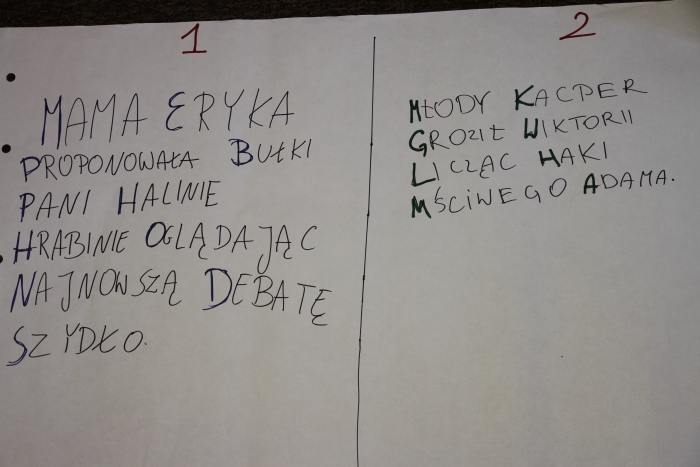 1
MAMA ERYKA
PROPONOWAŁA BUŁKI
PANI HALINIE
HRABINIE OGLĄDAJĄC
NAJNOWSZĄ DEBATĘ
SZYDŁO.
2
MŁODY KACPER
GROZIŁ WIKTORII
LICZĄC HAKI
MŚCIWEGO ADAMA.